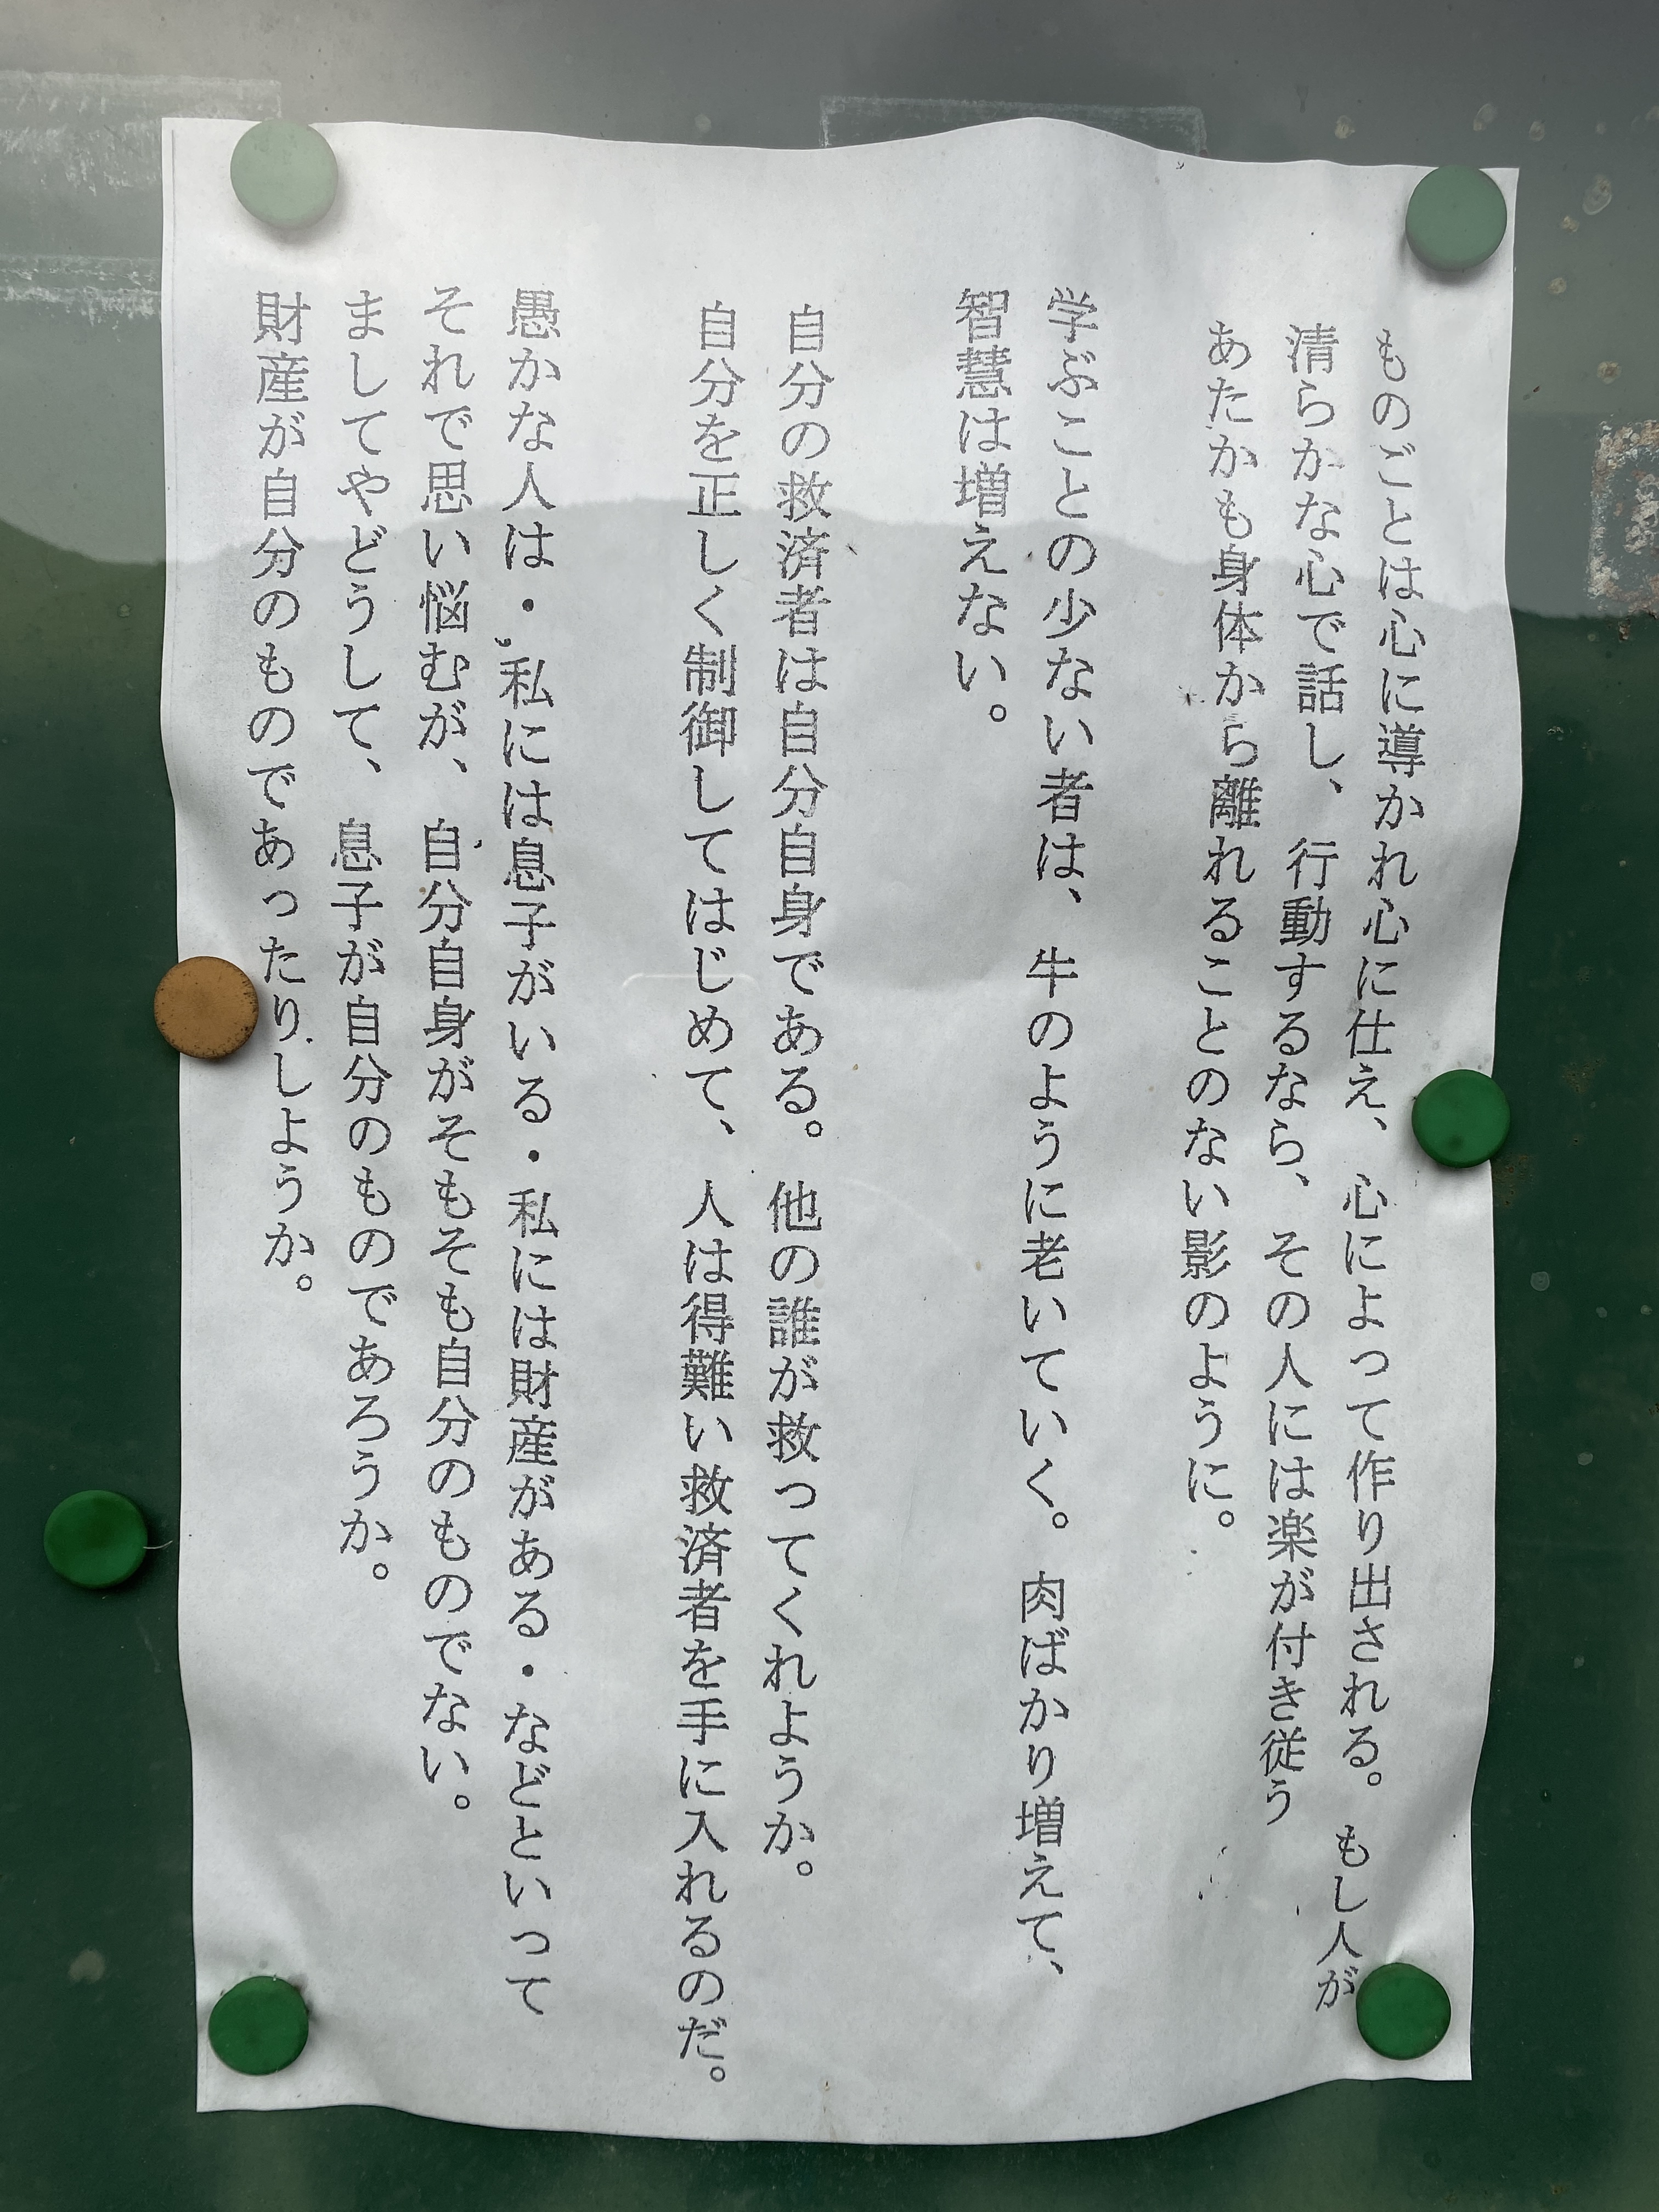 ものごとは心に導かれ心に仕え、心によって作り出される。もし人が
清らかな心で話し、行動するなら、その人には楽が付き従う
あたかも身体から離れることのない影のように。
学ぶことの少ない者は、牛のように老いていく。肉ばかり増えて、
智慧は増えない。
自分の救済者は自分自身である。他の誰が救ってくれようか。
自分を正しく制御してはじめて、人は得難い救済者を手に入れるのだ。
愚かな人は・私には息子がいる・私には財産がある・などといって
それで思い悩むが、自分自身がそもそも自分のものでない。
ましてやどうして、息子が自分のものであろうか。
財産が自分のものであったりしようか。